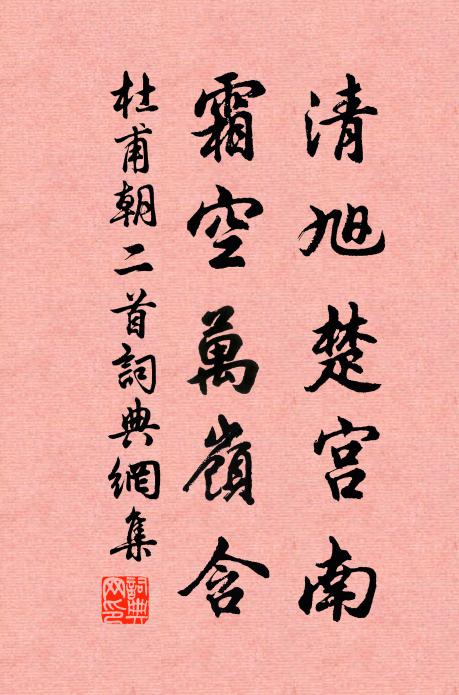 清旭楚宮南
霜空萬嶺含
杜甫朝二首詞典網集
詞典網印